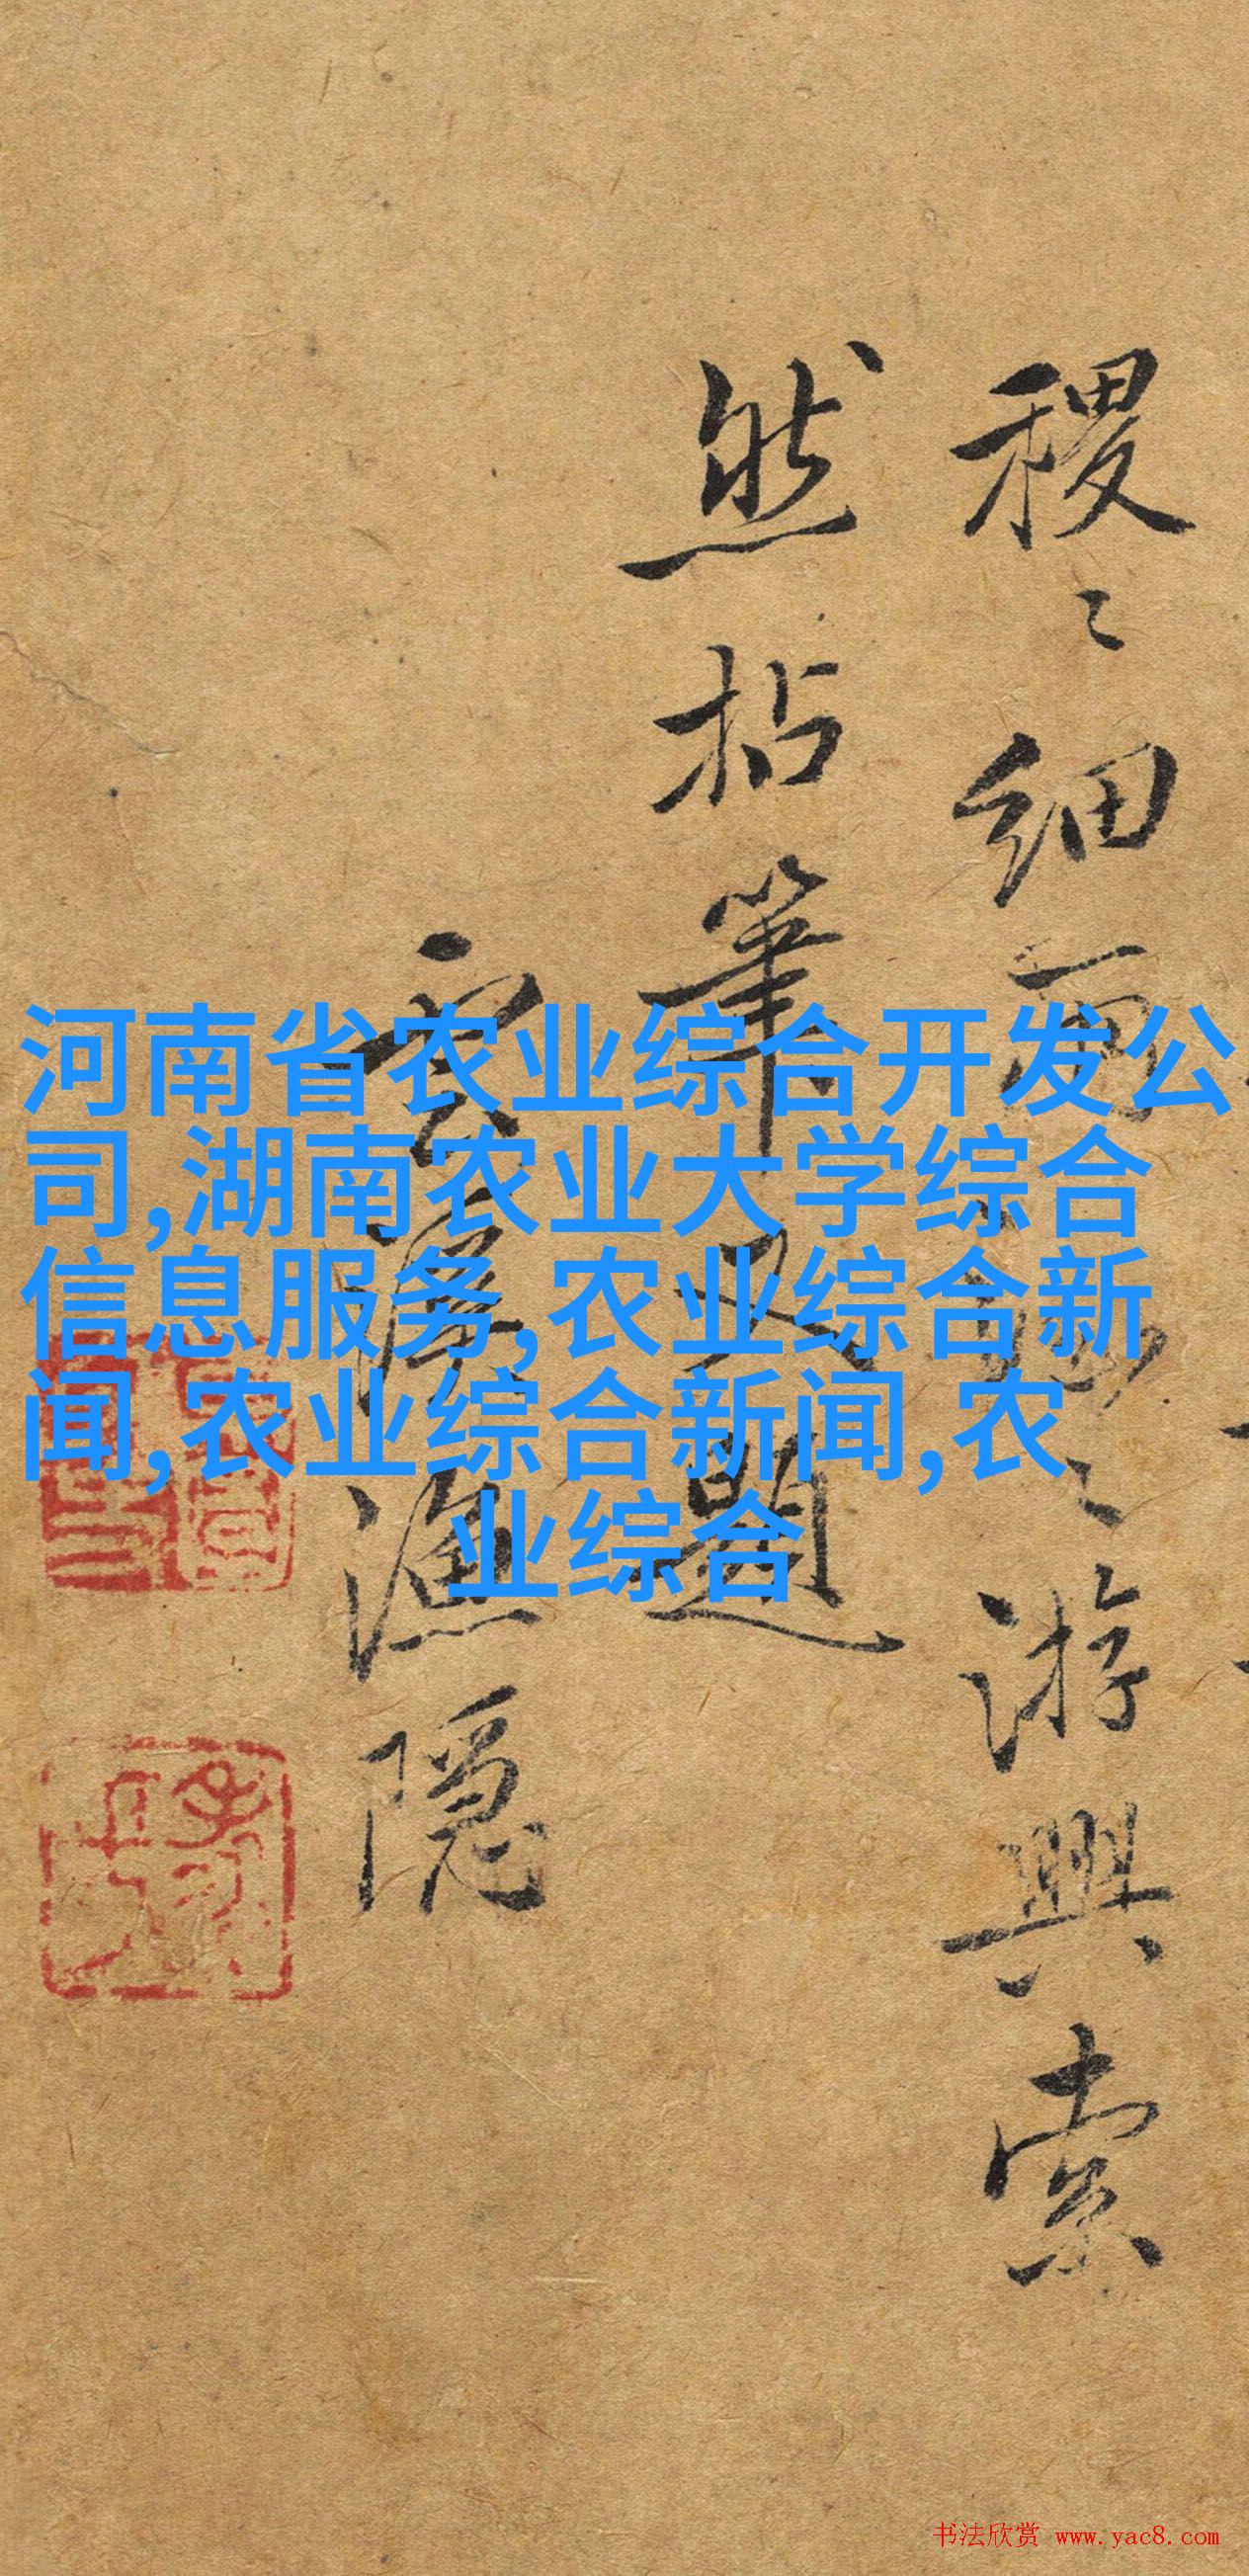 稷〻细雨
游興索
然拈筆又題
雲
漁隱
河南省农业综合开发公
司,湖南农业大学综合
信息服务,农业综合新
闻,农业综合新闻,农
业综合
书法欣赏 www.yac8.com